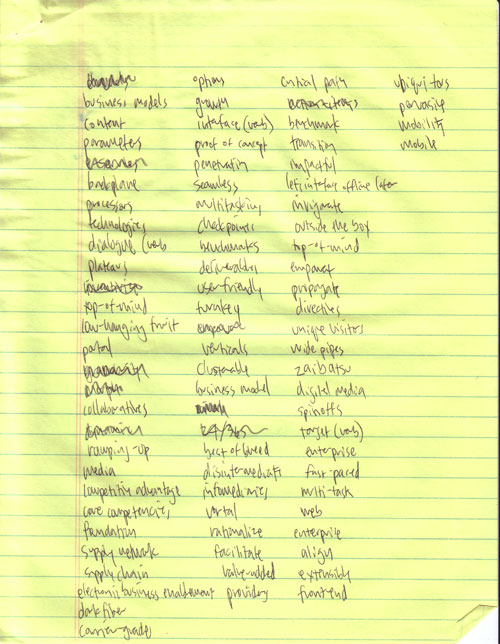 options critical path ubiquitous
business models growth pervasive
content interface (verb) benchmark mobility
parameters proof of concept transition mobile
penetration impactful
backplane seamless let's interface offline later
processors multitasking invigorate
technologies checkpoints outside the box
dialogue (verb) benchmarks top-of-mind
plateaus deliverables empower
user-friendly propagate
top-of-mind turnkey directives
low-hanging fruit unique visitors
portal verticals wide pipes
clusterable zaibatsu
business model digital media
collaboratives spinoffs
24/365 target (verb)
ramping-up best of breed enterprise
media disintermediate fast-paced
competitive advantage infomediaries multi-task
core competencies vortal web
foundation rationalize enterprise
supply network facilitate align
supply chain value-added extensible
electronic business enablement providers front-end
dark fiber
carrier-grade